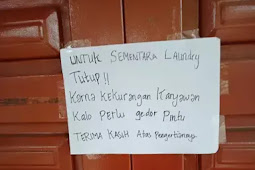 UNTUK SEMENTARA LAUNDRY
Tutup!!
Karna kekurangan Karyawan
Kalo Perlu gedor Pintu
TERIMA KASIH Atas Pengertiannya